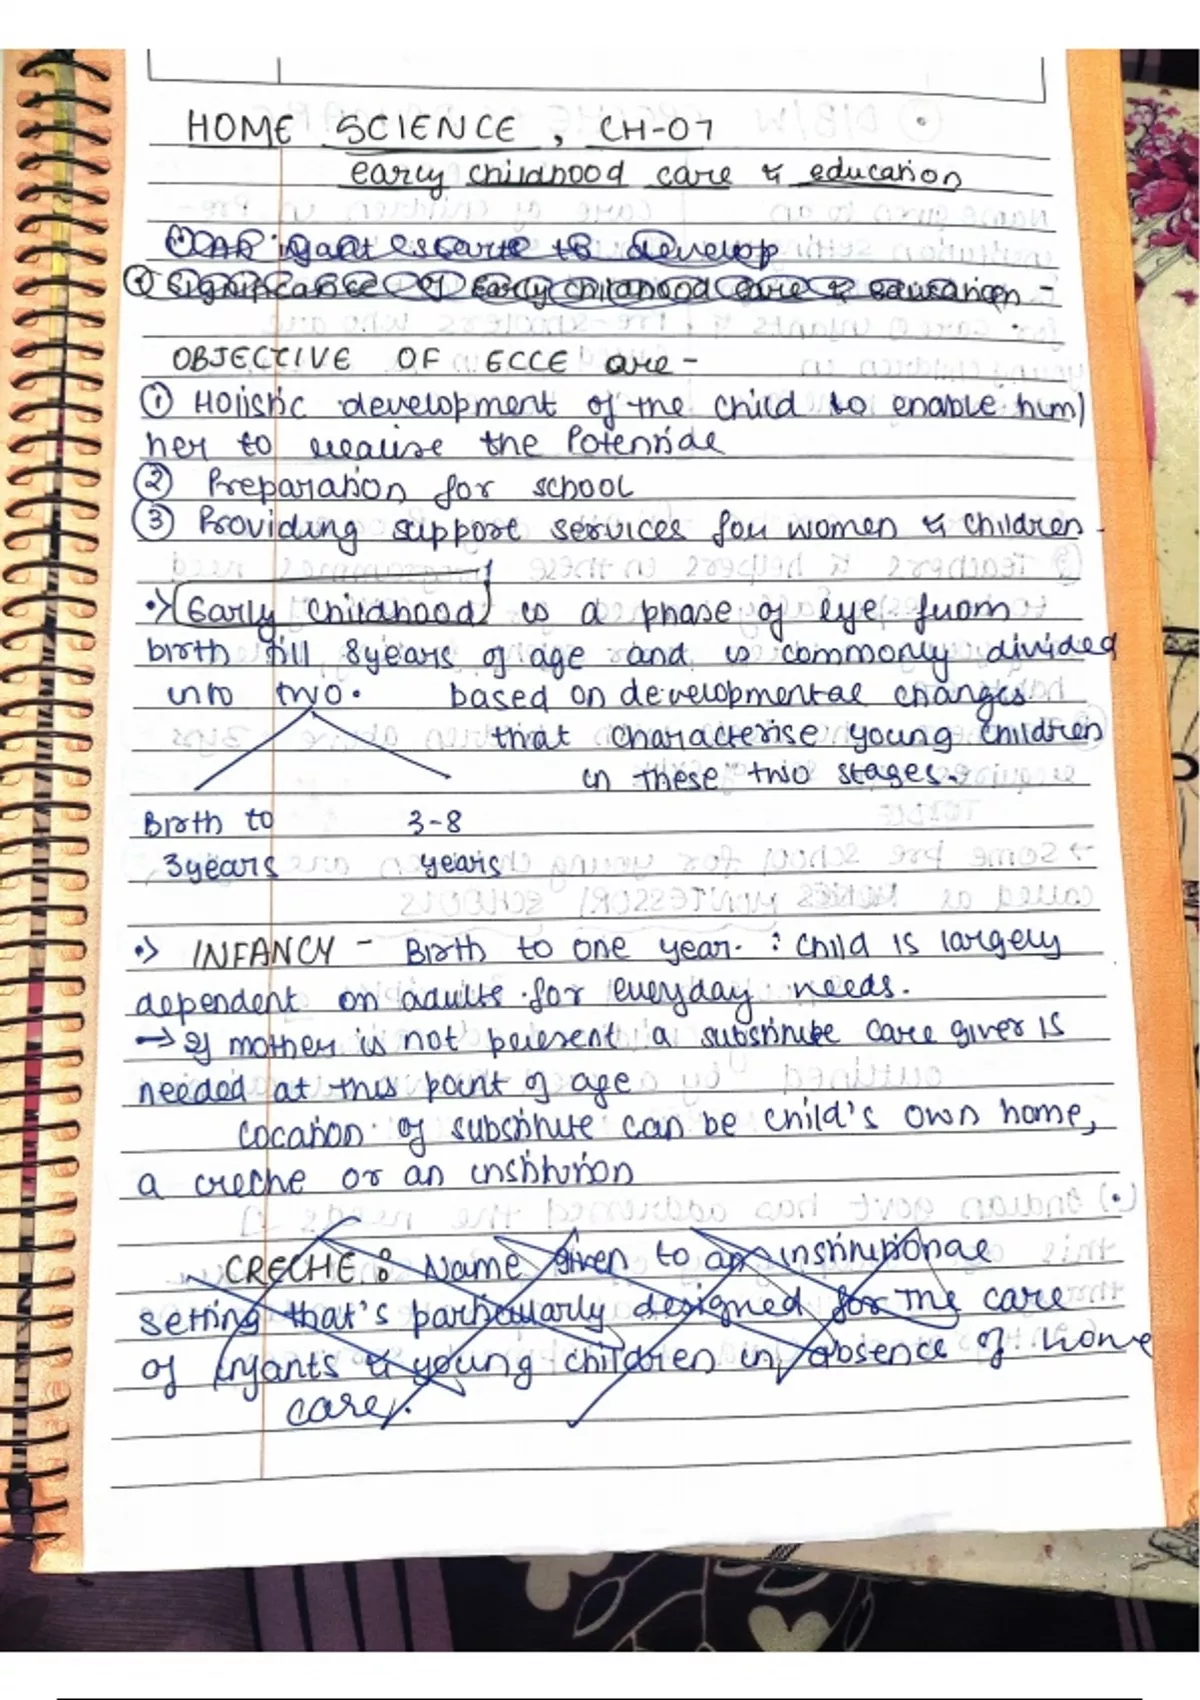 HOME SCIENCE, CH-07
early childhood care & education
Significance of Early childhood care & education -
OBJECTIVE OF ECCE are -
① Holistic development of the child to enable him/
her to realise the Potential
② Preparation for school
③ Providing support services for women & children.
•> Early childhood is a phase of life from
birth till 8years of age and is commonly divided
into two. based on developmental changes
that characterise young children
in these two stages.
Birth to 3-8
3years years
•> INFANCY - Birth to one year. : Child is largely
dependent on adults for everyday needs.
→ If mother is not present a substitute care giver is
needed at this point of age
Location of substitute can be child's own home,
a creche or an institution
CRECHE : Name given to an institutional
setting that's particularly designed for the care
of infants & young children in absence of home
care.